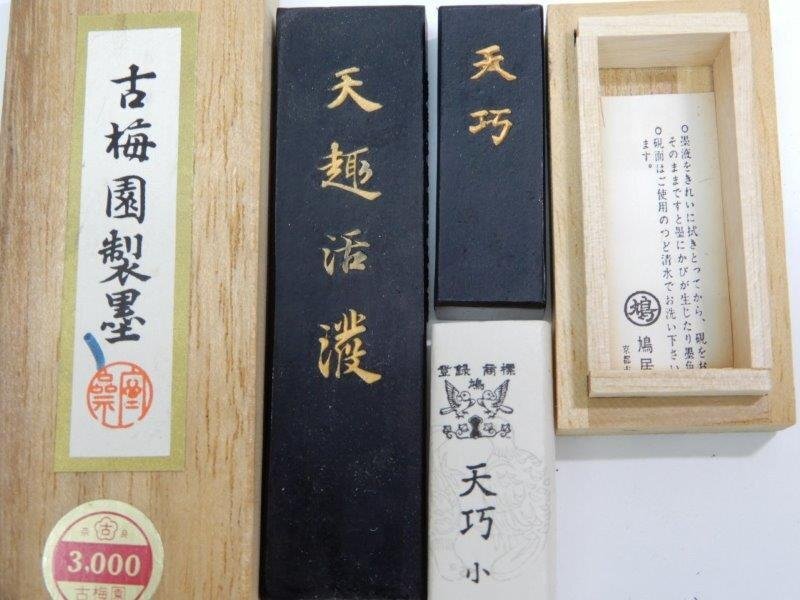 古梅園製墨
奈 古 良
3.000
古梅園
天趣活溌
天巧
登録 商標
鳩
天巧 小
○墨液をきれいに拭きとつてから、硯をお
そのままですと墨にかびが生じたり墨色
○硯面はご使用のつど清水でお洗い下さい
ます。
鳩
鳩居
京都